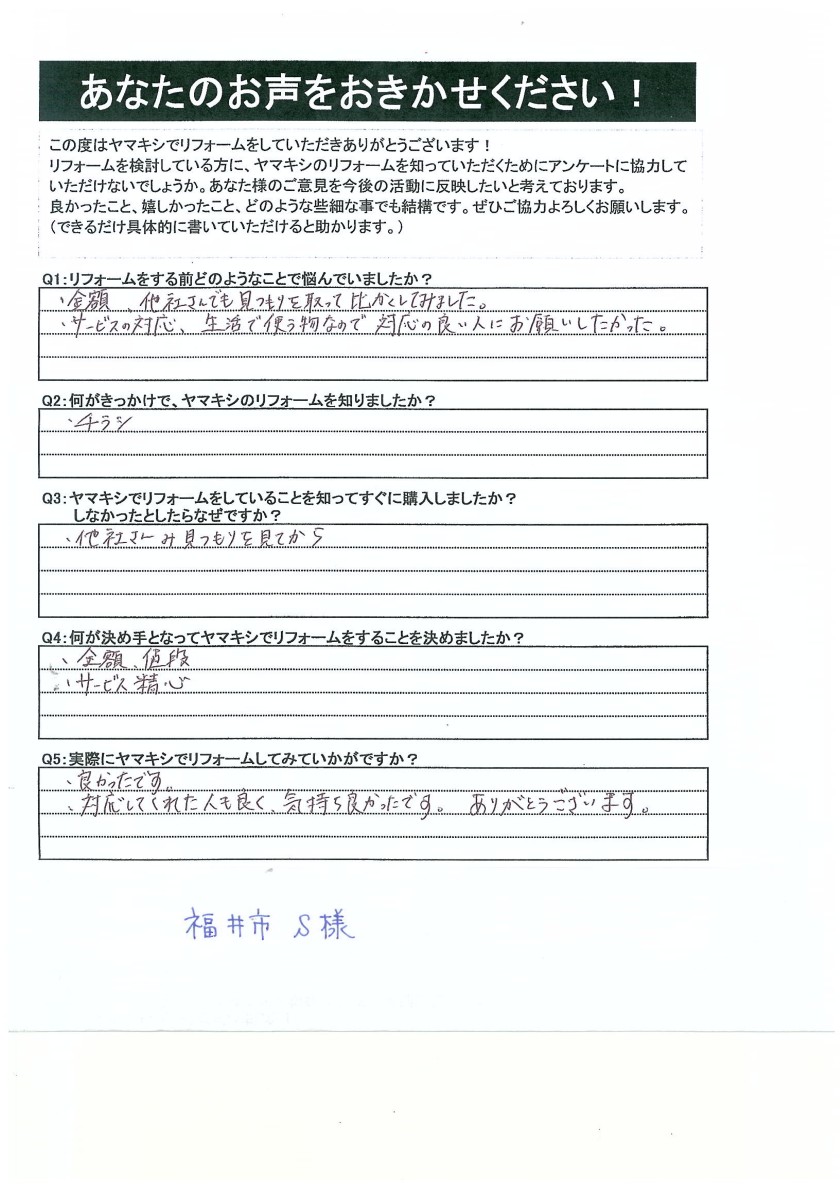 あなたのお声をおきかせください！
この度はヤマキシでリフォームをしていただきありがとうございます！
リフォームを検討している方に、ヤマキシのリフォームを知っていただくためにアンケートに協力して
いただけないでしょうか。あなた様のご意見を今後の活動に反映したいと考えております。
良かったこと、嬉しかったこと、どのような些細な事でも結構です。ぜひご協力よろしくお願いします。
（できるだけ具体的に書いていただけると助かります。）
Q1：リフォームをする前どのようなことで悩んでいましたか？
・金額、他社さんでも見つもりを取って比かくしてみました。
・サービスの対応、生活で使う物なので対応の良い人にお願いしたかった。
Q2：何がきっかけで、ヤマキシのリフォームを知りましたか？
・チラシ
Q3：ヤマキシでリフォームをしていることを知ってすぐに購入しましたか？
しなかったとしたらなぜですか？
・他社さん見つもりを見てから
Q4：何が決め手となってヤマキシでリフォームをすることを決めましたか？
・金額、値段
・サービス精心
Q5：実際にヤマキシでリフォームしてみていかがですか？
・良かったです。
・対応してくれた人も良く、気持ち良かったです。ありがとうございます。
福井市 S様